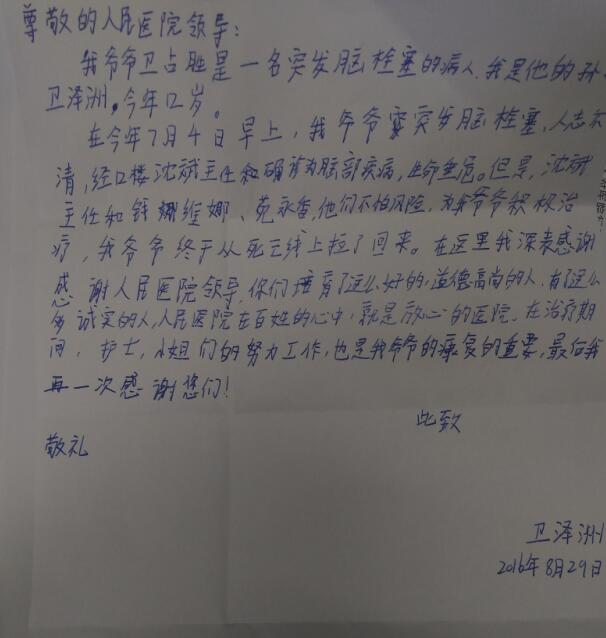 尊敬的人民医院领导:
我爷爷卫占胜是一名突发脑栓塞的病人,我是他的孙
卫泽洲,今年12岁。
在今年7月4日早上,我爷爷突发脑栓塞,人志不
清,经口楼沈斌主任和确诊为脑部疾病,生命垂危。但是,沈斌
主任和钱维娜、苑永香,他们不怕风险,为我爷爷积极治
疗,我爷爷终于从死亡线上拉了回来。在这里我深表感谢
感谢人民医院领导,你们培育了这么好的,道德高尚的人,有了这么
多诚实的人,人民医院在百姓的心中,就是放心的医院。在治疗期
间,护士,小姐们的努力工作,也是我爷爷的康复的重要,最后我
再一次感谢您们!
此致
敬礼
卫泽洲
2016年8月29日